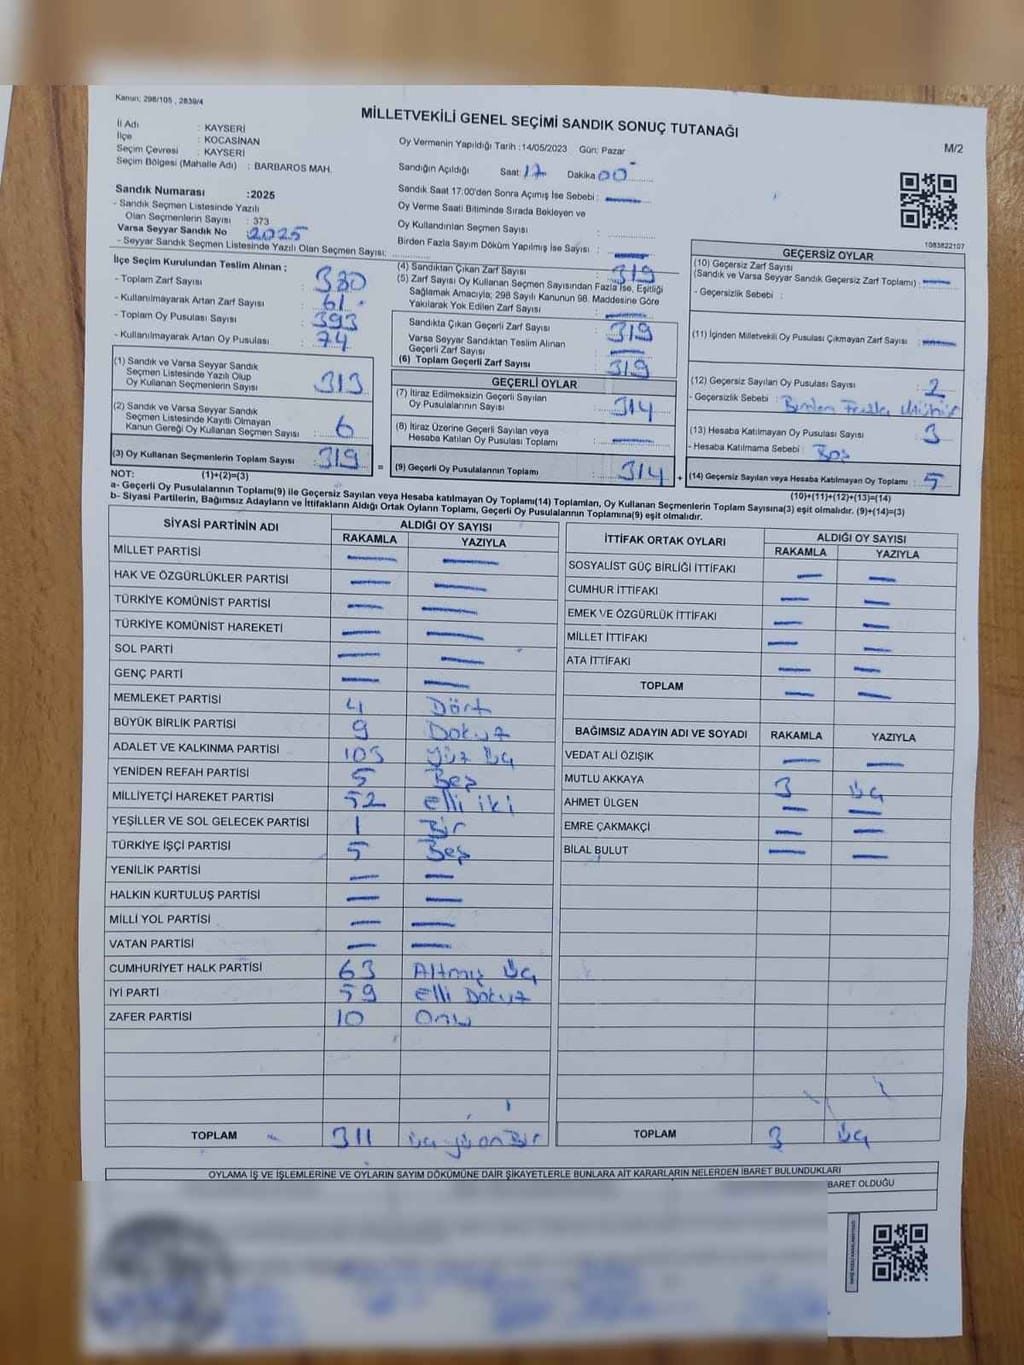 Kanun: 298/105 , 2839/4
MİLLETVEKİLİ GENEL SEÇİMİ SANDIK SONUÇ TUTANAĞI
M/2
İl Adı : KAYSERİ
İlçe : KOCASİNAN
Seçim Çevresi : KAYSERİ
Seçim Bölgesi (Mahalle Adı) : BARBAROS MAH.
Sandık Numarası :2025
- Sandık Seçmen Listesinde Yazılı
Olan Seçmenlerin Sayısı : 373
Varsa Seyyar Sandık No : 2025
- Seyyar Sandık Seçmen Listesinde Yazılı Olan Seçmen Sayısı:
Oy Vermenin Yapıldığı Tarih :14/05/2023 Gün: Pazar
Sandığın Açıldığı Saat: 17 Dakika 00
Sandık Saat 17:00'den Sonra Açımış İse Sebebi : —
Oy Verme Saati Bitiminde Sırada Bekleyen ve
Oy Kullandırılan Seçmen Sayısı :
Birden Fazla Sayım Döküm Yapılmış İse Sayısı : —
1083822107
İlçe Seçim Kurulundan Teslim Alınan ;
- Toplam Zarf Sayısı : 380
- Kullanılmayarak Artan Zarf Sayısı : 61
- Toplam Oy Pusulası Sayısı : 393
- Kullanılmayarak Artan Oy Pusulası : 74
(1) Sandık ve Varsa Seyyar Sandık
Seçmen Listesinde Yazılı Olup
Oy Kullanan Seçmenlerin Sayısı : 313
(2) Sandık ve Varsa Seyyar Sandık
Seçmen Listesinde Kayıtlı Olmayan
Kanun Gereği Oy Kullanan Seçmen Sayısı : 6
(3) Oy Kullanan Seçmenlerin Toplam Sayısı : 319
(1)+(2)=(3)
(4) Sandıktan Çıkan Zarf Sayısı : 319
(5) Zarf Sayısı Oy Kullanan Seçmen Sayısından Fazla İse, Eşitliği
Sağlamak Amacıyla; 298 Sayılı Kanunun 98. Maddesine Göre
Yakılarak Yok Edilen Zarf Sayısı : —
Sandıkta Çıkan Geçerli Zarf Sayısı : 319
Varsa Seyyar Sandıktan Teslim Alınan
Geçerli Zarf Sayısı : —
(6) Toplam Geçerli Zarf Sayısı : 319
GEÇERLİ OYLAR
(7) İtiraz Edilmeksizin Geçerli Sayılan
Oy Pusulalarının Sayısı : 314
(8) İtiraz Üzerine Geçerli Sayılan veya
Hesaba Katılan Oy Pusulası Toplamı : —
= (9) Geçerli Oy Pusulalarının Toplamı : 314 +
GEÇERSİZ OYLAR
(10) Geçersiz Zarf Sayısı
(Sandık ve Varsa Seyyar Sandık Geçersiz Zarf Toplamı) : —
- Geçersizlik Sebebi :
(11) İçinden Milletvekili Oy Pusulası Çıkmayan Zarf Sayısı : —
(12) Geçersiz Sayılan Oy Pusulası Sayısı : 2
- Geçersizlik Sebebi : Birden Fazla Mühür
(13) Hesaba Katılmayan Oy Pusulası Sayısı : 3
- Hesaba Katılmama Sebebi : Boş
(14) Geçersiz Sayılan veya Hesaba Katılmayan Oy Toplamı : 5
(10)+(11)+(12)+(13)=(14)
NOT:
a- Geçerli Oy Pusulalarının Toplamı(9) ile Geçersiz Sayılan veya Hesaba katılmayan Oy Toplamı(14) Toplamları, Oy Kullanan Seçmenlerin Toplam Sayısına(3) eşit olmalıdır. (9)+(14)=(3)
b- Siyasi Partilerin, Bağımsız Adayların ve İttifakların Aldığı Ortak Oyların Toplamı, Geçerli Oy Pusulalarının Toplamına(9) eşit olmalıdır.
SİYASİ PARTİNİN ADI ALDIĞI OY SAYISI
RAKAMLA YAZIYLA
MİLLET PARTİSİ — —
HAK VE ÖZGÜRLÜKLER PARTİSİ — —
TÜRKİYE KOMÜNİST PARTİSİ — —
TÜRKİYE KOMÜNİST HAREKETİ — —
SOL PARTİ — —
GENÇ PARTİ — —
MEMLEKET PARTİSİ 4 Dört
BÜYÜK BİRLİK PARTİSİ 9 Dokuz
ADALET VE KALKINMA PARTİSİ 103 Yüz Üç
YENİDEN REFAH PARTİSİ 5 Beş
MİLLİYETÇİ HAREKET PARTİSİ 52 Elli iki
YEŞİLLER VE SOL GELECEK PARTİSİ 1 Bir
TÜRKİYE İŞÇİ PARTİSİ 5 Beş
YENİLİK PARTİSİ — —
HALKIN KURTULUŞ PARTİSİ — —
MİLLİ YOL PARTİSİ — —
VATAN PARTİSİ — —
CUMHURİYET HALK PARTİSİ 63 Altmış Üç
İYİ PARTİ 59 Elli Dokuz
ZAFER PARTİSİ 10 On
TOPLAM 311 üç yüz on Bir
İTTİFAK ORTAK OYLARI ALDIĞI OY SAYISI
RAKAMLA YAZIYLA
SOSYALİST GÜÇ BİRLİĞİ İTTİFAKI — —
CUMHUR İTTİFAKI — —
EMEK VE ÖZGÜRLÜK İTTİFAKI — —
MİLLET İTTİFAKI — —
ATA İTTİFAKI — —
TOPLAM — —
BAĞIMSIZ ADAYIN ADI VE SOYADI RAKAMLA YAZIYLA
VEDAT ALİ ÖZIŞIK — —
MUTLU AKKAYA 3 üç
AHMET ÜLGEN — —
EMRE ÇAKMAKÇİ — —
BİLAL BULUT — —
TOPLAM 3 üç
OYLAMA İŞ VE İŞLEMLERİNE VE OYLARIN SAYIM DÖKÜMÜNE DAİR ŞİKAYETLERLE BUNLARA AİT KARARLARIN NELERDEN İBARET BULUNDUKLARI
BARET OLDUĞU